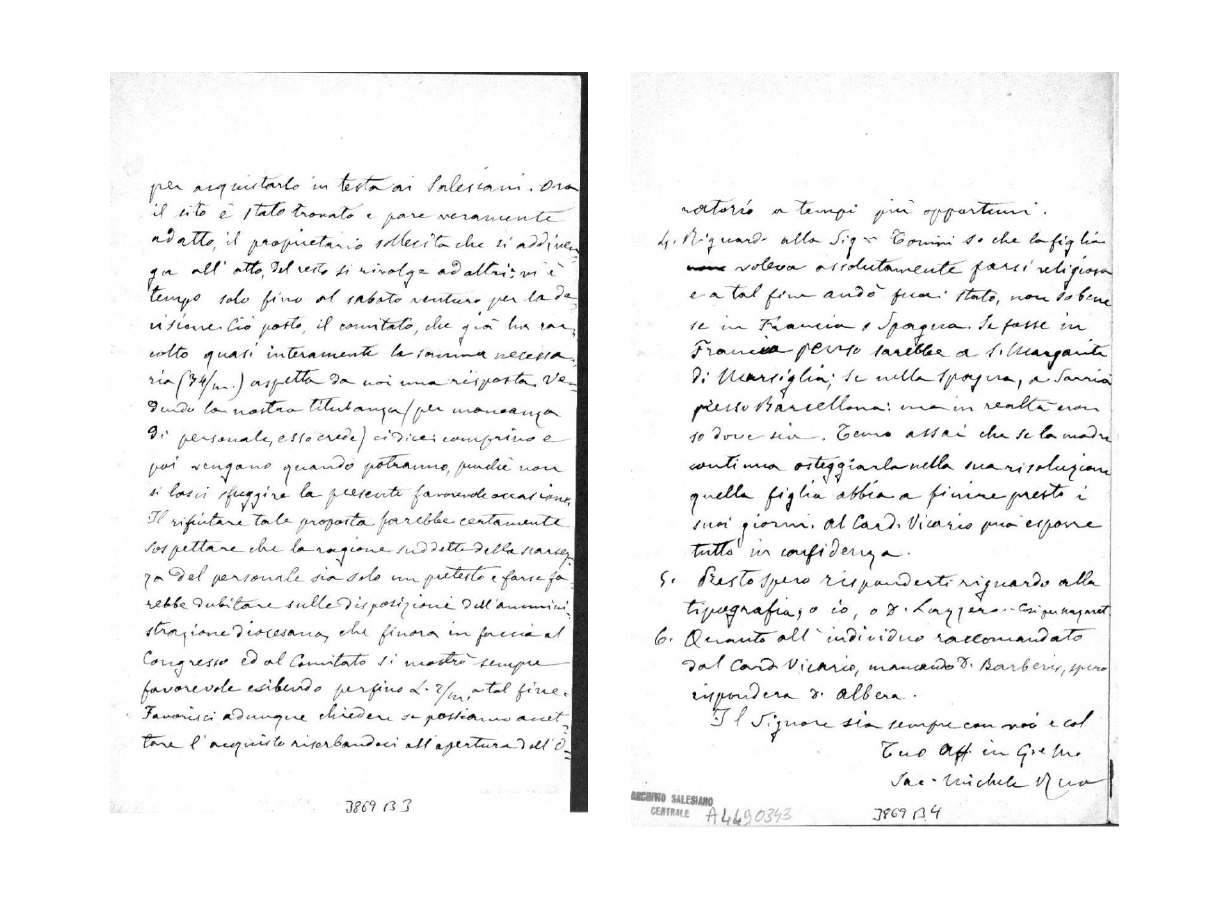 per acquistarlo in testa ai Salesiani. Ora
il sito è stato trovato e pare veramente
adatto, il proprietario sollecita che si addiven-
ga all'atto, del resto si rivolge ad altri: vi è
tempo solo fino al sabato venturo per la de-
cisione. Ciò posto, il comitato, che già ha rac-
colto quasi interamente la somma necessa-
ria (34/m.) aspetta da noi una risposta. Ve-
dendo la nostra titubanza (per mancanza
di personale, esso crede) ci dice: comprino e
poi vengano quando potranno, purchè non
si lasci sfuggire la presente favorevole occasione.
Il rifiutare tale proposta farebbe certamente
sospettare che la ragione suddetta della scarsez-
za del personale sia solo un pretesto e forse fa-
rebbe dubitare sulle disposizioni dell'ammini-
strazione diocesana, che finora in faccia al
Congresso ed al Comitato si mostrò sempre
favorevole esibendo perfino L. 2/m, a tal fine.
Favorisci adunque chiedere se possiamo accet-
tare l'acquisto riserbandoci all'apertura dell'O-
J869 B 3
ratorio a tempi più opportuni.
4. Riguardo alla Sig.ra Tomini so che la figlia
voleva assolutamente farsi religiosa
e a tal fine andò fuori Stato, non so bene
se in Francia o Spagna. Se fosse in
Francia penso sarebbe a S. Margarita
di Marsiglia; se nella Spagna, a Sarrià
presso Barcellona: ma in realtà non
so dove sia. Temo assai che se la madre
continua osteggiarla nella sua risoluzione
quella figlia abbia a finire presto i
suoi giorni. Al Card. Vicario puoi esporre
tutto in confidenza.
5. Presto spero risponderti riguardo alla
tipografia, o io, o D. Lazzero.
6. Quanto all'individuo raccomandato
dal Card. Vicario, mancando D. Barberis, spero
risponderà D. Albera.
Il Signore sia sempre con noi e col
Tuo Aff. in G. e M.
Sac. Michele Rua
ARCHIVIO SALESIANO
CENTRALE
A4490343
J869 B 4